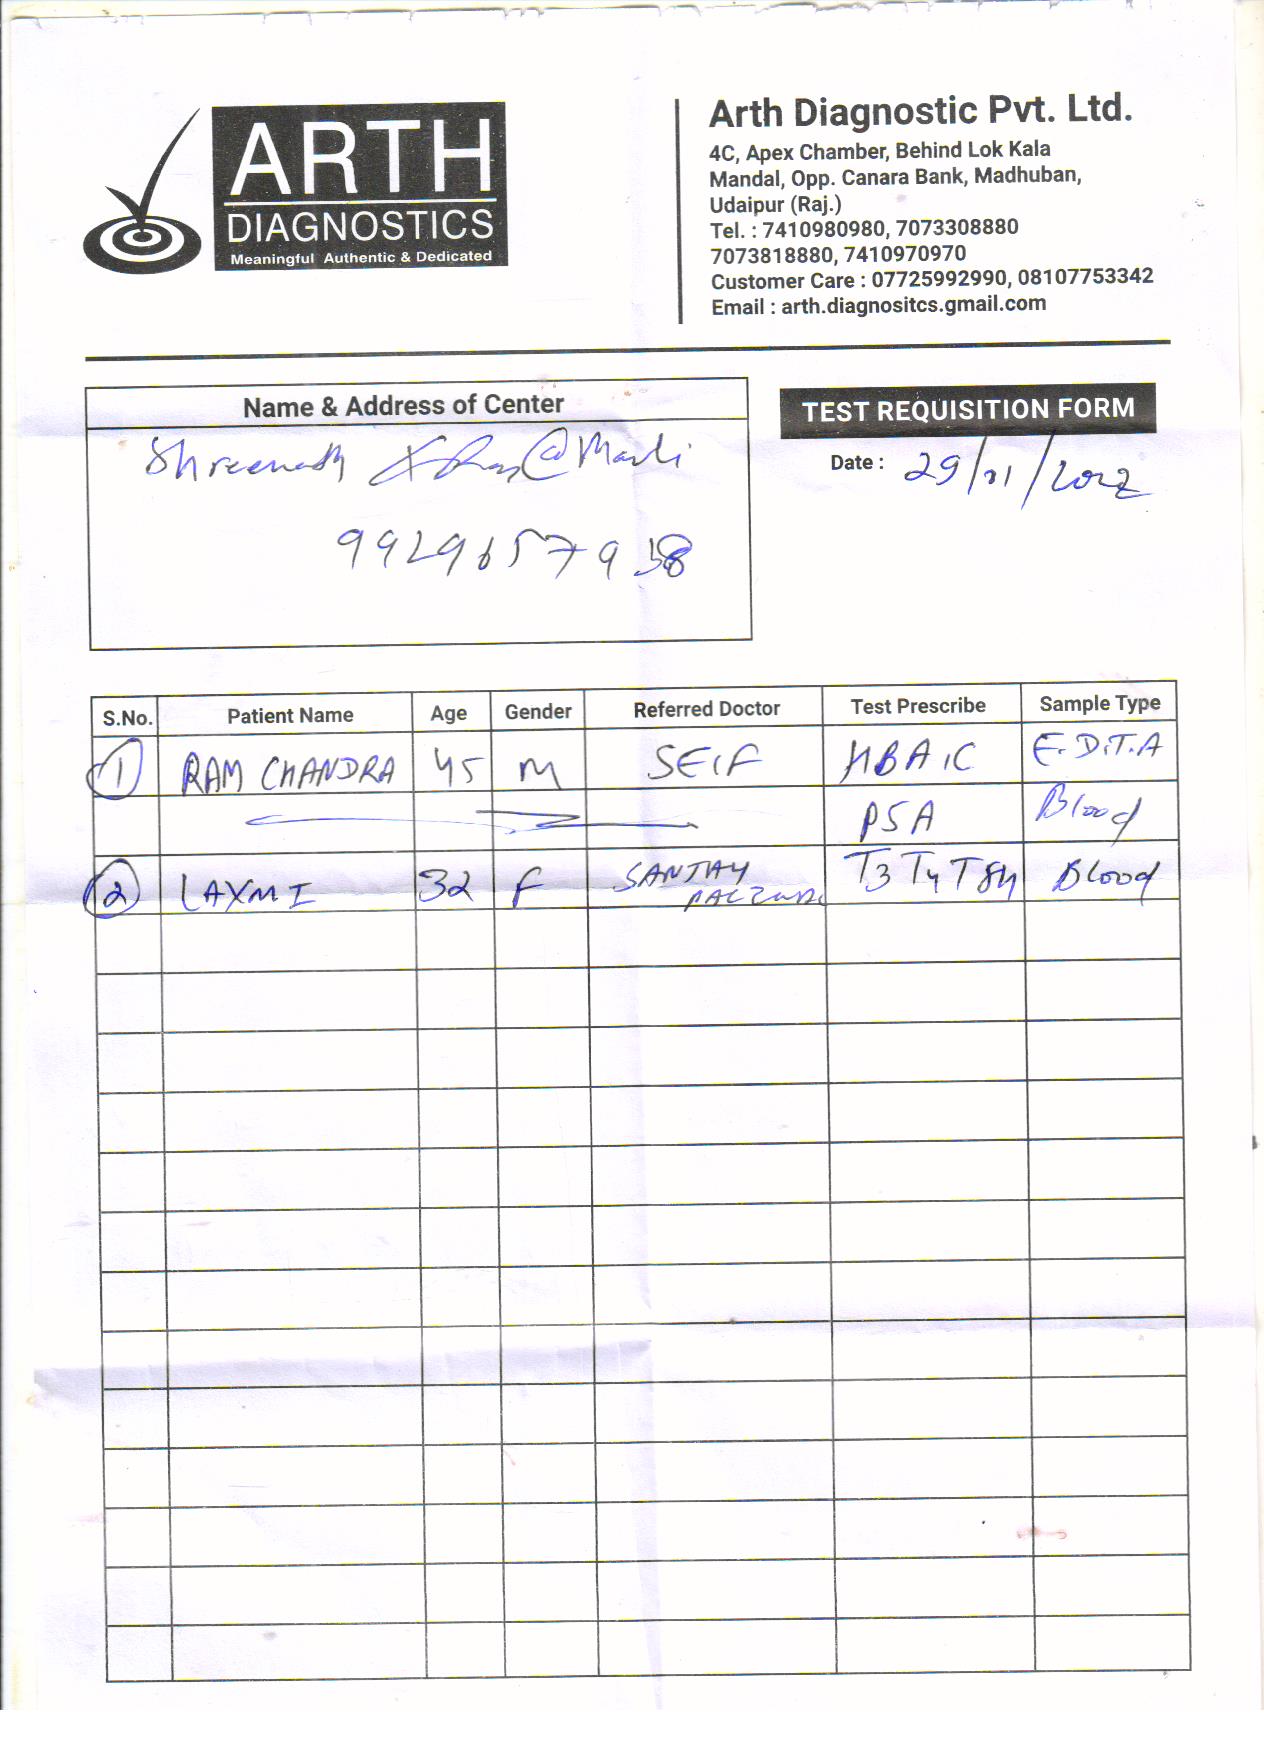 ARTH
DIAGNOSTICS
Meaningful Authentic & Dedicated
Arth Diagnostic Pvt. Ltd.
4C, Apex Chamber, Behind Lok Kala
Mandal, Opp. Canara Bank, Madhuban,
Udaipur (Raj.)
Tel. : 7410980980, 7073308880
7073818880, 7410970970
Customer Care : 07725992990, 08107753342
Email : arth.diagnositcs.gmail.com
Name & Address of Center
Shreenath X Ray @
TEST REQUISITION FORM
Date :
S.No. Patient Name Age Gender Referred Doctor Test Prescribe Sample Type
1 RAM CHANDRA 45 M SEIF HBA1C E.D.T.A
PSA Blood
2 LAXMI 32 F SANJAY T3 T4 TSH Blood